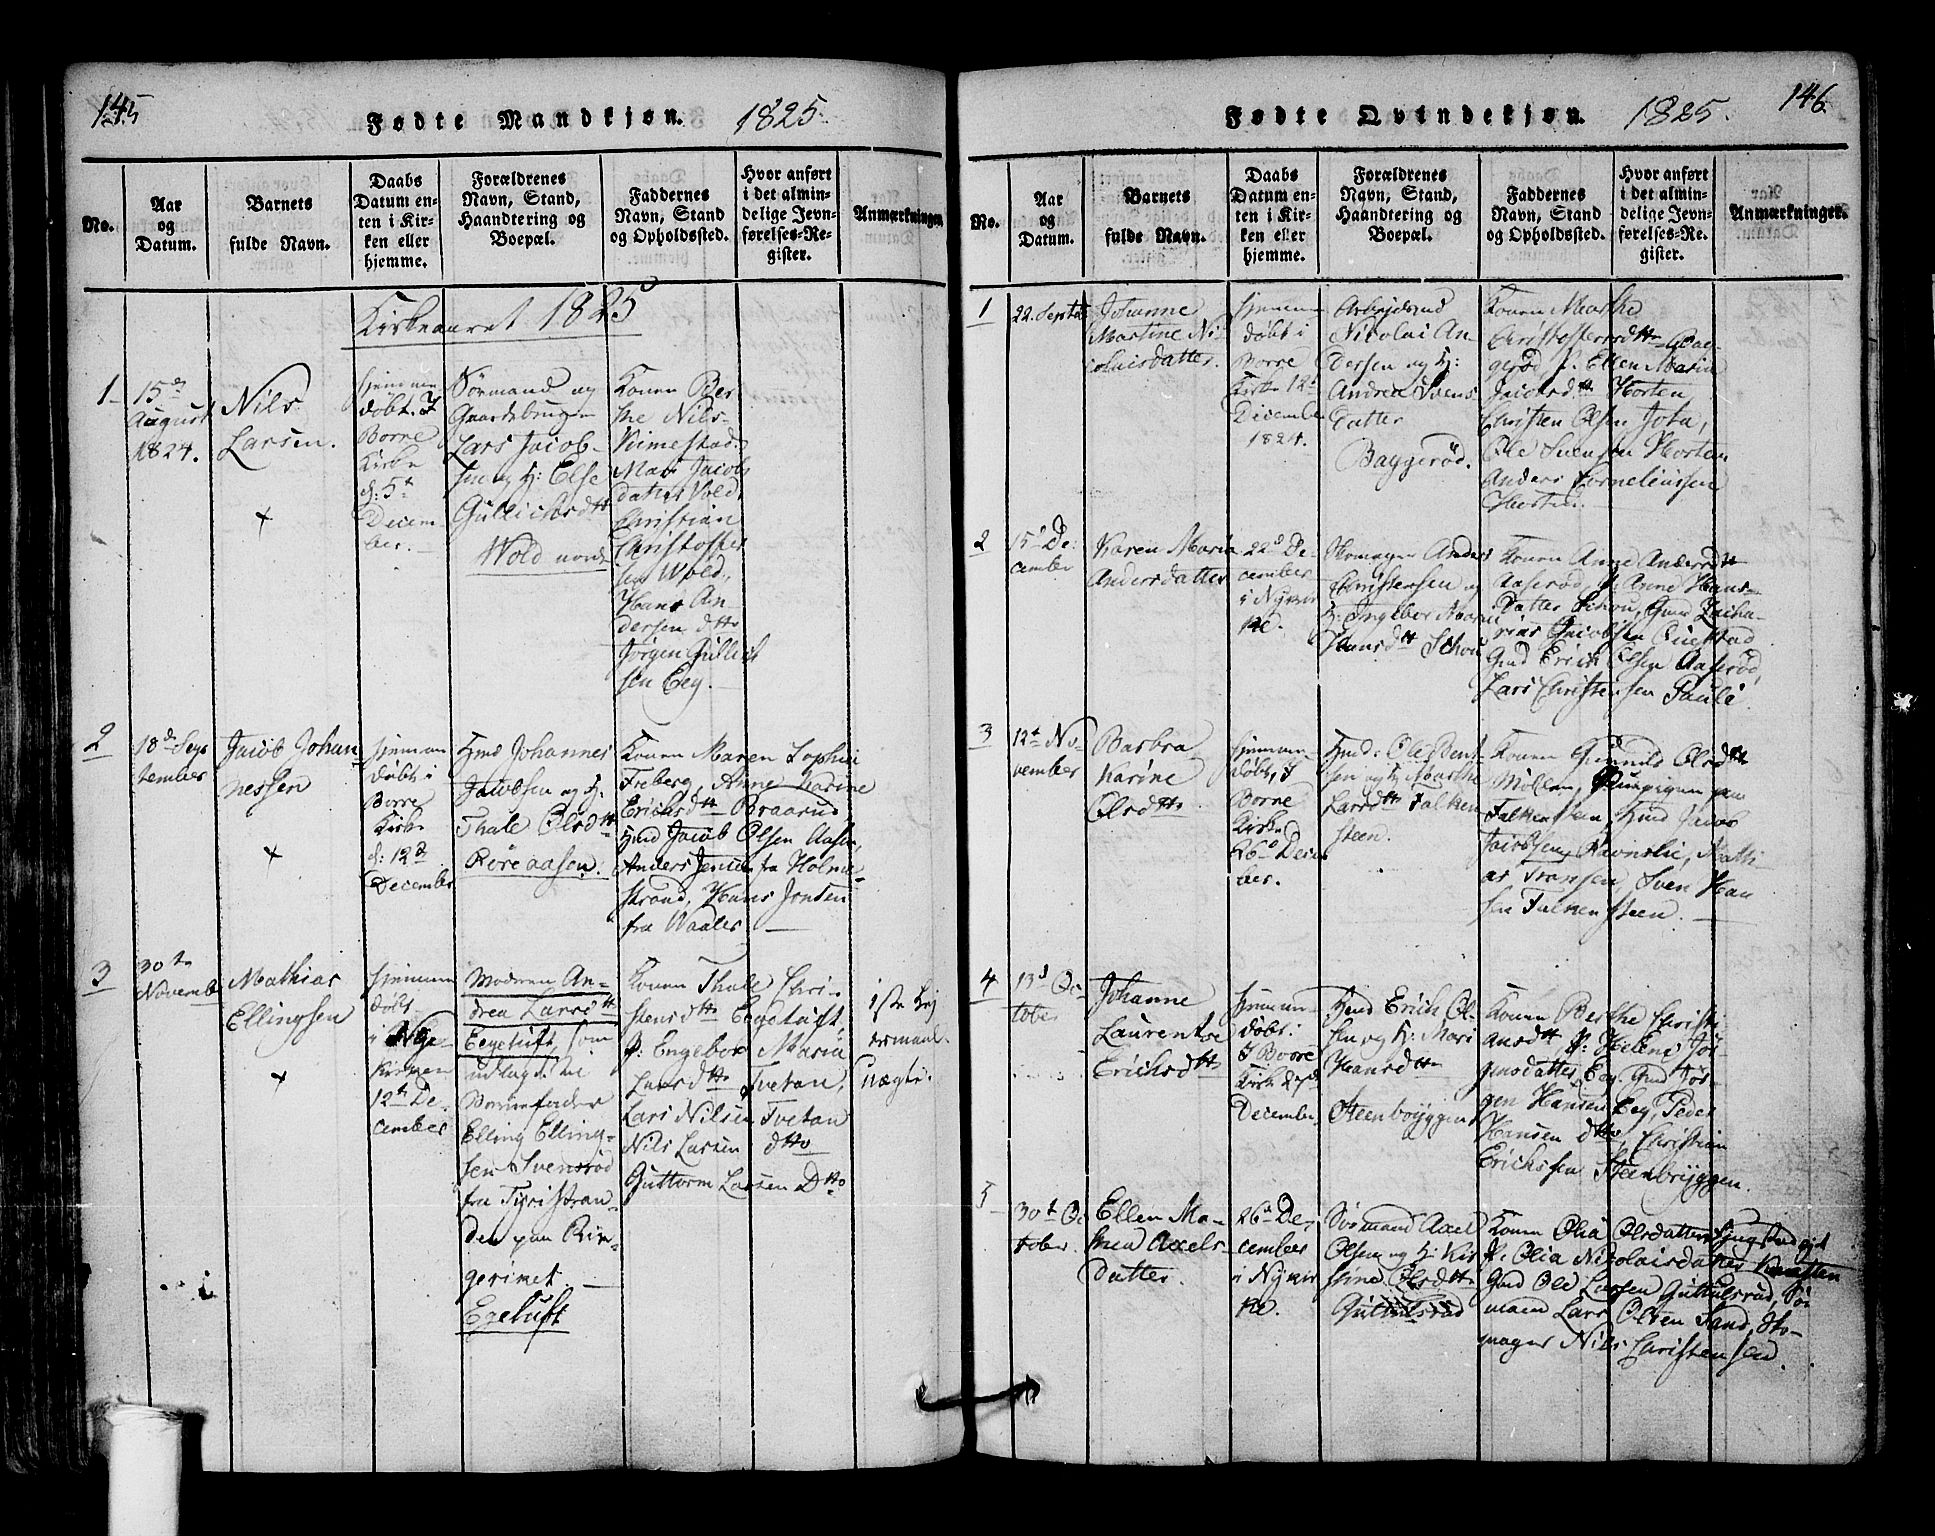 145
Fødte Mandkjøn. 1825
No.
Aar
og
Datum.
Barnets
fulde Navn.
Daabs
Datum en-
ten i Kir-
ken eller
hjemme.
Forældrenes
Navn, Stand,
Haandtering og
Boepæl.
Faddernes
Navn, Stand
og Opholdssted.
Hvor anført
i det almin-
delige Jevn-
førelses-Re-
gister.
Anmærkninger
Kirkeaaret 1825
1
15de
August
1824.
Nils
Larsen.
+
hjemme
døbt. I
Borre
Kirke
d: 5te
Decem
ber.
Sørmand og
Gaardbruger
Lars Jacob-
sen og H: Else
Gullichsdtt
Wold nordr
Konen Ber
the Nils-
Mari Jacobs
datter Vold,
Christian
Christoffer
sen Wold,
Hans An-
dersen dtto
Jørgen Gullich
sen Eeg.
2
18de Sep
tember
Jacob Johan
nessen
+
hjemme
døbt i
Borre
Kirke
d: 12te
December
Hmd Johannes
Jacobsen og H:
Thale Olsdtt
Røreaasen.
Konen Maren Sophie
Freberg, Anne Karine
Ericksdtt Braarud
Hmd Jacob Olsen Aasen,
Anders Jensen fra Holme-
strand, Hans Jonsen
fra Waaler
3
30te
Novemb
Mathias
Ellingsen
+
hjemme
døbt
i Nye
Kirken
12te De-
cember
Moderen An-
drea Larsdtt
Eegeluft, som
udlagde til
Barnefader
Elling Elling-
sen Svensrød
fra Tyristran-
den paa Rin-
geriget.
Egeluft
Konen Thale Chri-
stensdtt Eegeluft,
P: Engebor Maria
Larsdtt Tvetan,
Lars Nilsen Tvetan
Nils Larsen dtto
Guttorm Larsen Dtto
1ste Lej
ermaal.
Nægte.
146
Fødte Qvindekjøn. 1825.
No.
Aar
og
Datum.
Barnets
fulde Navn.
Daabs
Datum en-
ten i Kir-
ken eller
hjemme.
Forældrenes
Navn, Stand,
Haandtering og
Boepæl.
Faddernes
Navn, Stand
og Opholdssted.
Hvor anført
i det almin-
delige Jevn-
førelses-Re-
gister.
Anmærkninger.
1
22. Septb
Johanne
Martine Ni-
colaisdatter.
hjemme
døbt i
Borre
Kirke 12te
December
1824.
Arbejdsmd
Nicolai An-
dersen og H:
Andrea Svens
datter
Baggerød.
Konen Marthe
Christoffersdtt Bag-
gerød, P. Ellen Maria
Jacobsdtt Horten,
Christen Olsen Jota,
Ole Svensen Horten
Anders Corneliussen
Horten.
2
15de De-
cember
Karen Maria
Andersdatter
22de De-
cember
i Nykir
ke.
Skomager Anders
Christensen og
H: Ingebor Maria
Hansdtt Schou
Konen Anne Andersdtt
Aaserød, P: Anne Hans-
datter Schou, Gmd Zacha-
rias Jacobsen
Gmd Erich Olsen Aaserød,
Lars Christensen Pauli
3
12te No-
vember
Barbra
Karine
Olsdtt
hjemme-
døbt, I
Borre
Kirke
26de Decem
ber.
Hmd: Ole Bent-
sen og H: Marthe
Larsdtt Falken
steen.
Konen Gunnild Olsdtt
Møllen, Pigen paa
Falkensteen, Hmd Jacob
Jacobsen Ravnslie, Mathi-
as Fransen, Sven Han
sen Falkensteen.
4
13de Oc-
tober
Johanne
Laurentse
Ericksdtt
hjemme-
døbt:
I Borre
Kirke 27de
December
Hmd Erich Ol-
sen og H: Mari
Hansdtt
Steenbryggen
Konen Berthe Christi-
ansdtt P: Helene Jør-
gensdatter Eeg, Gmd Jør-
gen Hansen Eeg, Peder
Hansen dtto, Christian
Erichsen Steenbryggen.
5
30te Oc
tober.
Ellen Ma-
thea Axels-
datter.
26de De-
cember
i Nykir
ke.
Sørmand Axel
Olsen og H: Kir
stine Olsdtt
Guttulsrud
Konen Olia Olsdatter
P. Olia Nicolaisdatter
Gmd Ole Larsen Guttulsrud, Sø-
mand Lars Olsen Sand, Sko-
mager Nils Christensen.